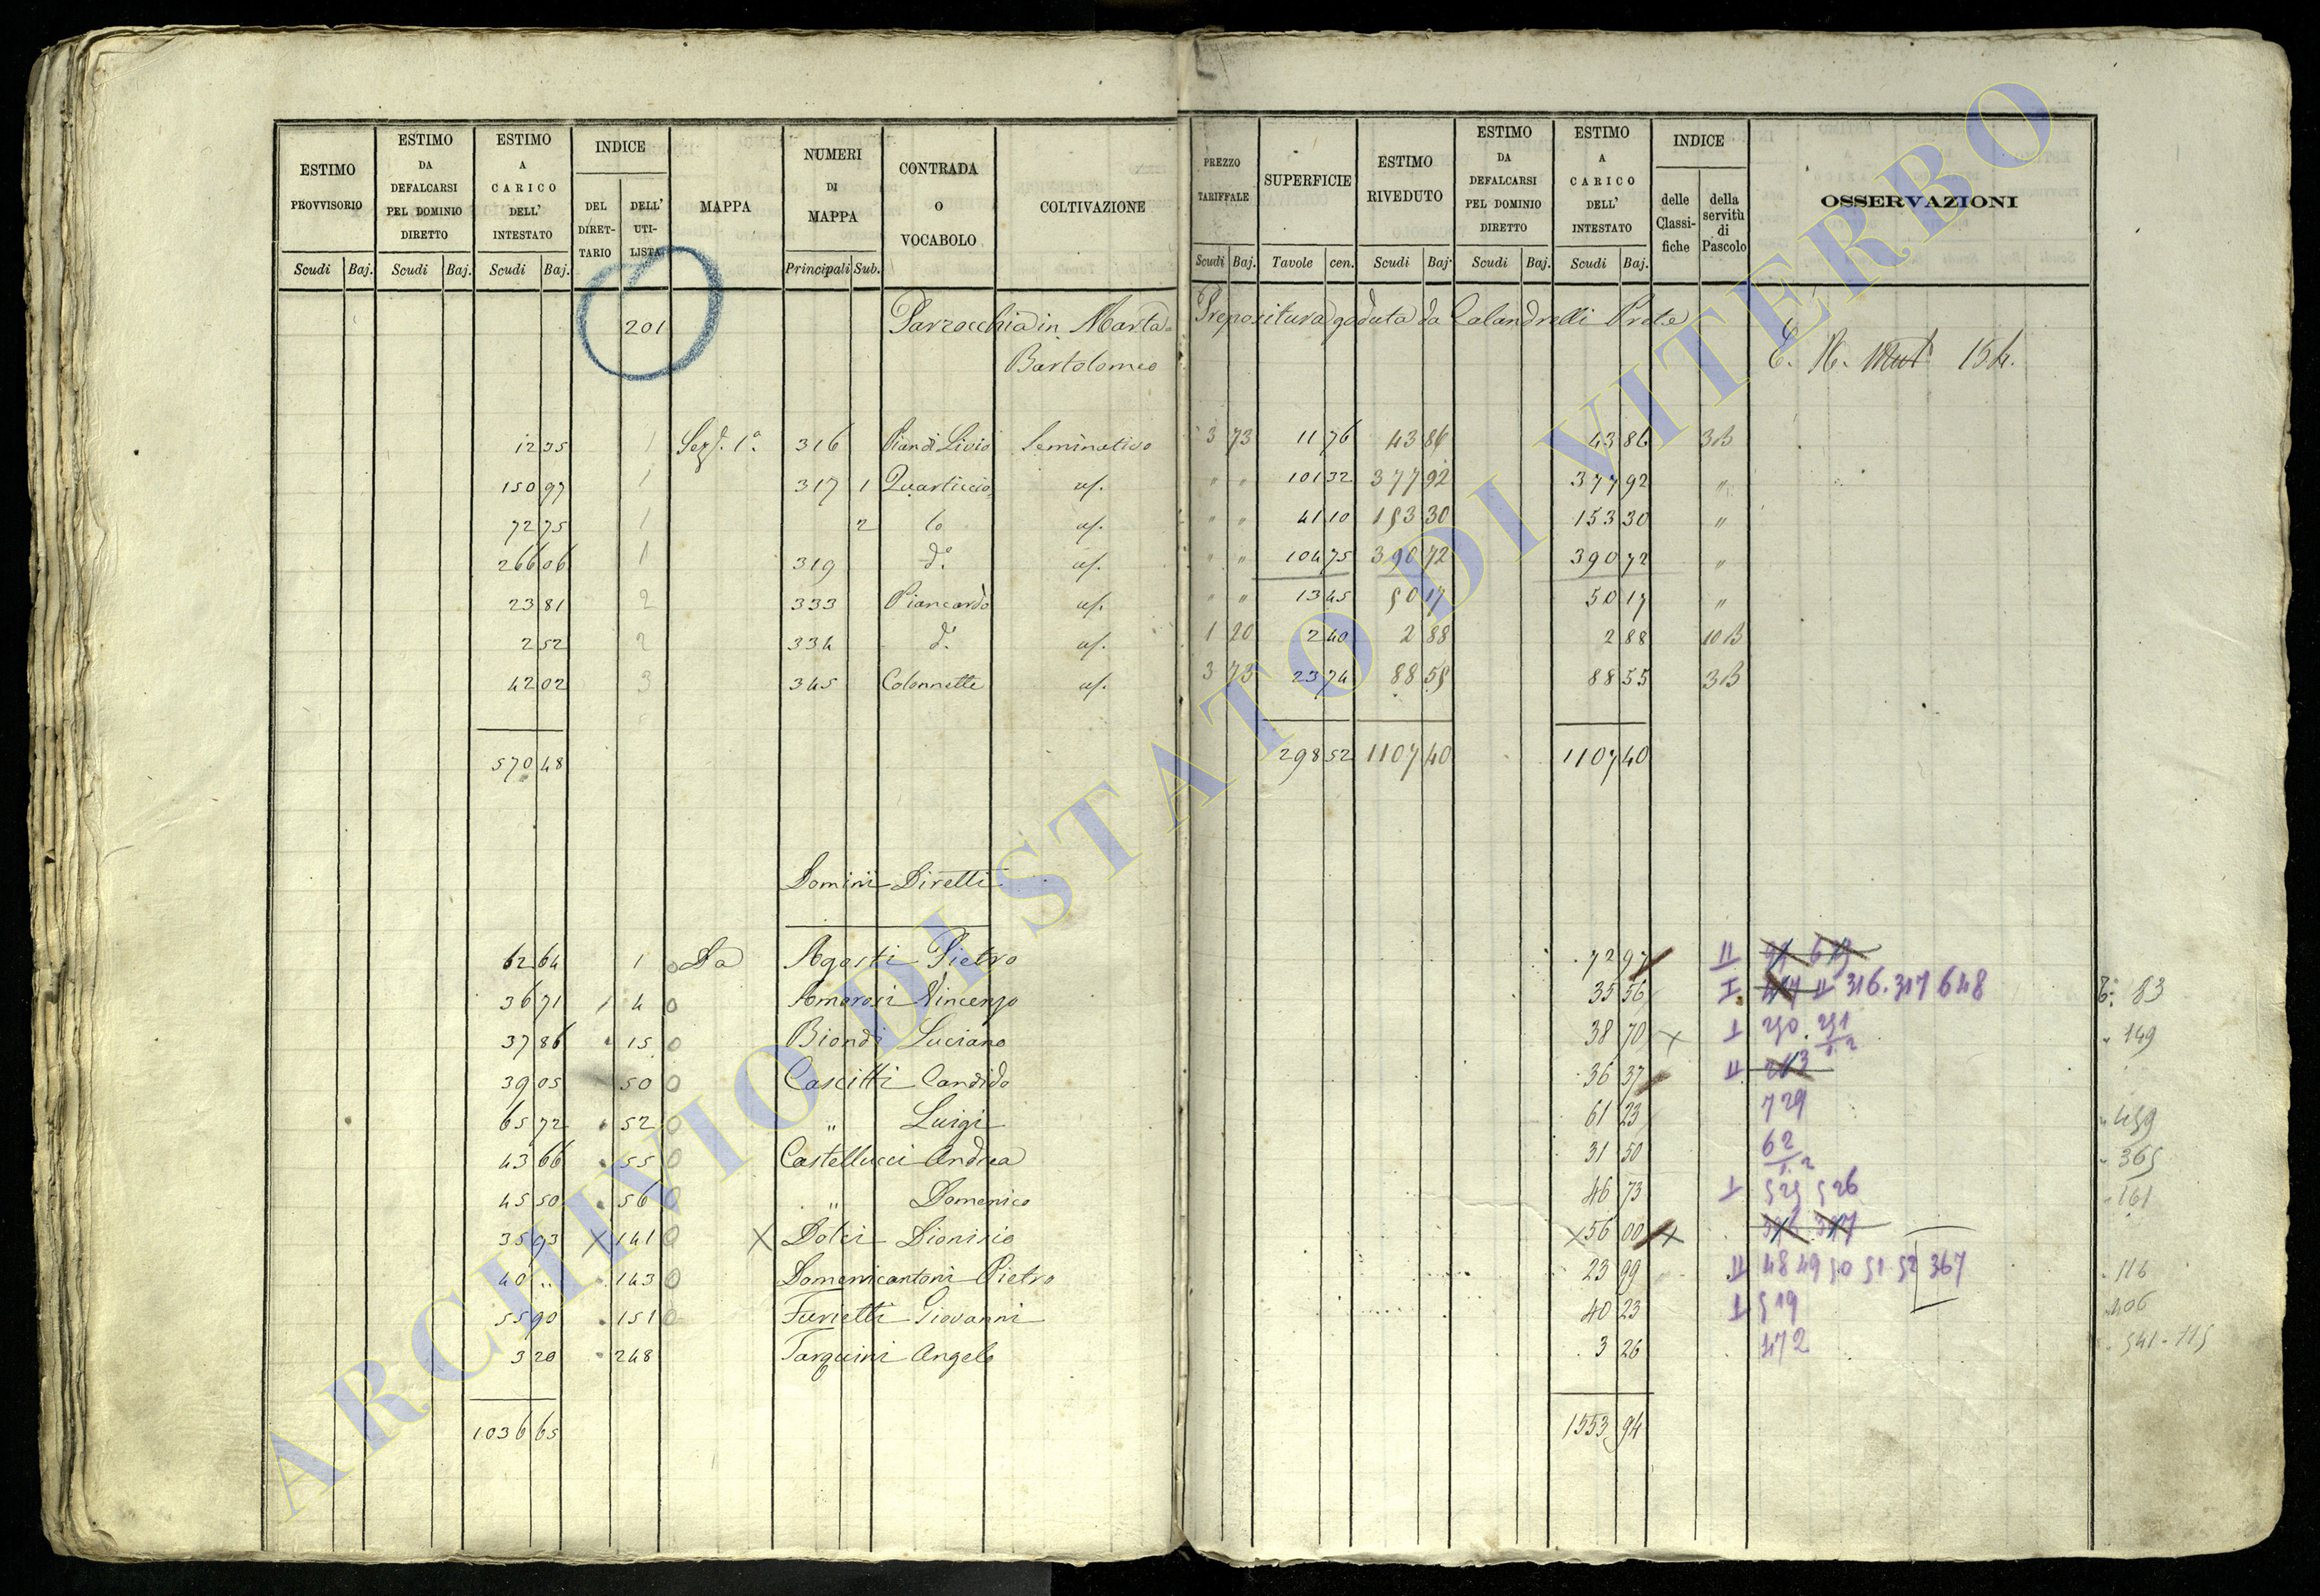 ESTIMO PROVVISORIO
Scudi Baj.
ESTIMO DA DEFALCARSI PEL DOMINIO DIRETTO
Scudi Baj.
ESTIMO A CARICO DELL' INTESTATO
Scudi Baj.
INDICE
DEL DIRET-TARIO
DELL' UTI-LISTA
MAPPA
NUMERI DI MAPPA
Principali Sub.
CONTRADA O VOCABOLO
COLTIVAZIONE
PREZZO TARIFFALE
Scudi Baj.
SUPERFICIE
Tavole cen.
ESTIMO RIVEDUTO
Scudi Baj
ESTIMO DA DEFALCARSI PEL DOMINIO DIRETTO
Scudi Baj.
ESTIMO A CARICO DELL' INTESTATO
Scudi Baj.
INDICE
delle Classi-fiche
della servitù di Pascolo
OSSERVAZIONI
201 Parrocchia in Marta Prepositura goduta da Calandrelli Prete
Bartolomeo 154.
12 35 1 Sez. 1a. 316 Pian di Livio Seminativo 3 73 11 76 43 86 43 86 3B
150 97 1 317 1 Quartuccio " " 101 32 377 92 377 92 "
72 75 1 2 " " 41 10 153 30 153 30 "
266 06 1 319 do. " " 104 75 390 72 390 72 "
23 81 2 333 Piancardo " " 13 45 50 17 50 17 "
2 52 2 334 do. 1 20 2 40 2 88 2 88 10B
42 02 3 345 Colonnette 3 73 23 74 88 55 88 55 3B
570 48 298 52 1107 40 1107 40
Domini Diretti
62 64 1 0 Da Agosti Pietro 72 97 II
36 71 4 0 Amorosi Vincenzo 35 56 I II 316. 317 648 83
37 86 15 0 Biondi Luciano 38 70 x I 250. 251 1.2 " 149
39 05 50 0 Cascitti Candido 36 37 II 263
65 72 52 0 " Luigi 61 23 729 " 459
43 66 55 0 Castellucci Andrea 31 50 62 1.2 " 365
45 50 56 0 " Domenico 46 73 I 525 526 " 161
35 93 x 141 0 x Dolci Dionisio x 56 00 x 316 317
40 " 143 0 Domenicantoni Pietro 23 99 II 48 49 50 51 52 367 " 116
55 90 151 0 Furietti Giovanni 40 23 I 519 " 406
3 20 248 Tarquini Angelo 3 26 472 " 541-115
1036 65 1553 94
ARCHIVIO DI STATO DI VITERBO